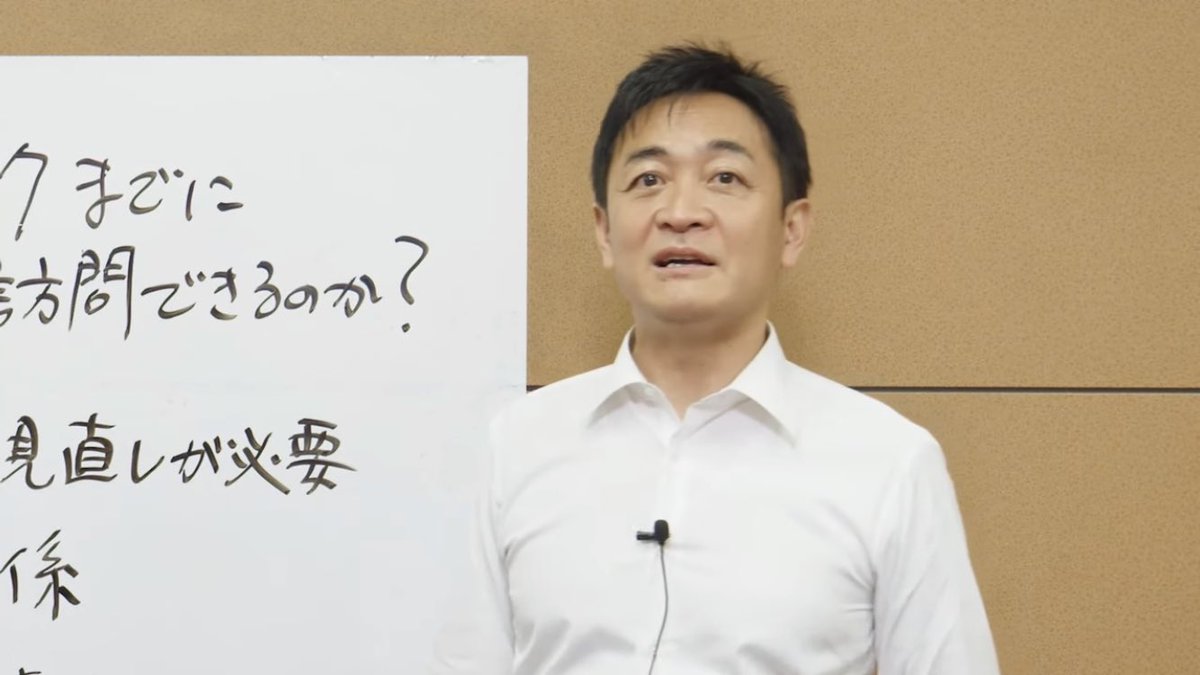 クまでに
訪問できるのか?
見直しが必要
係